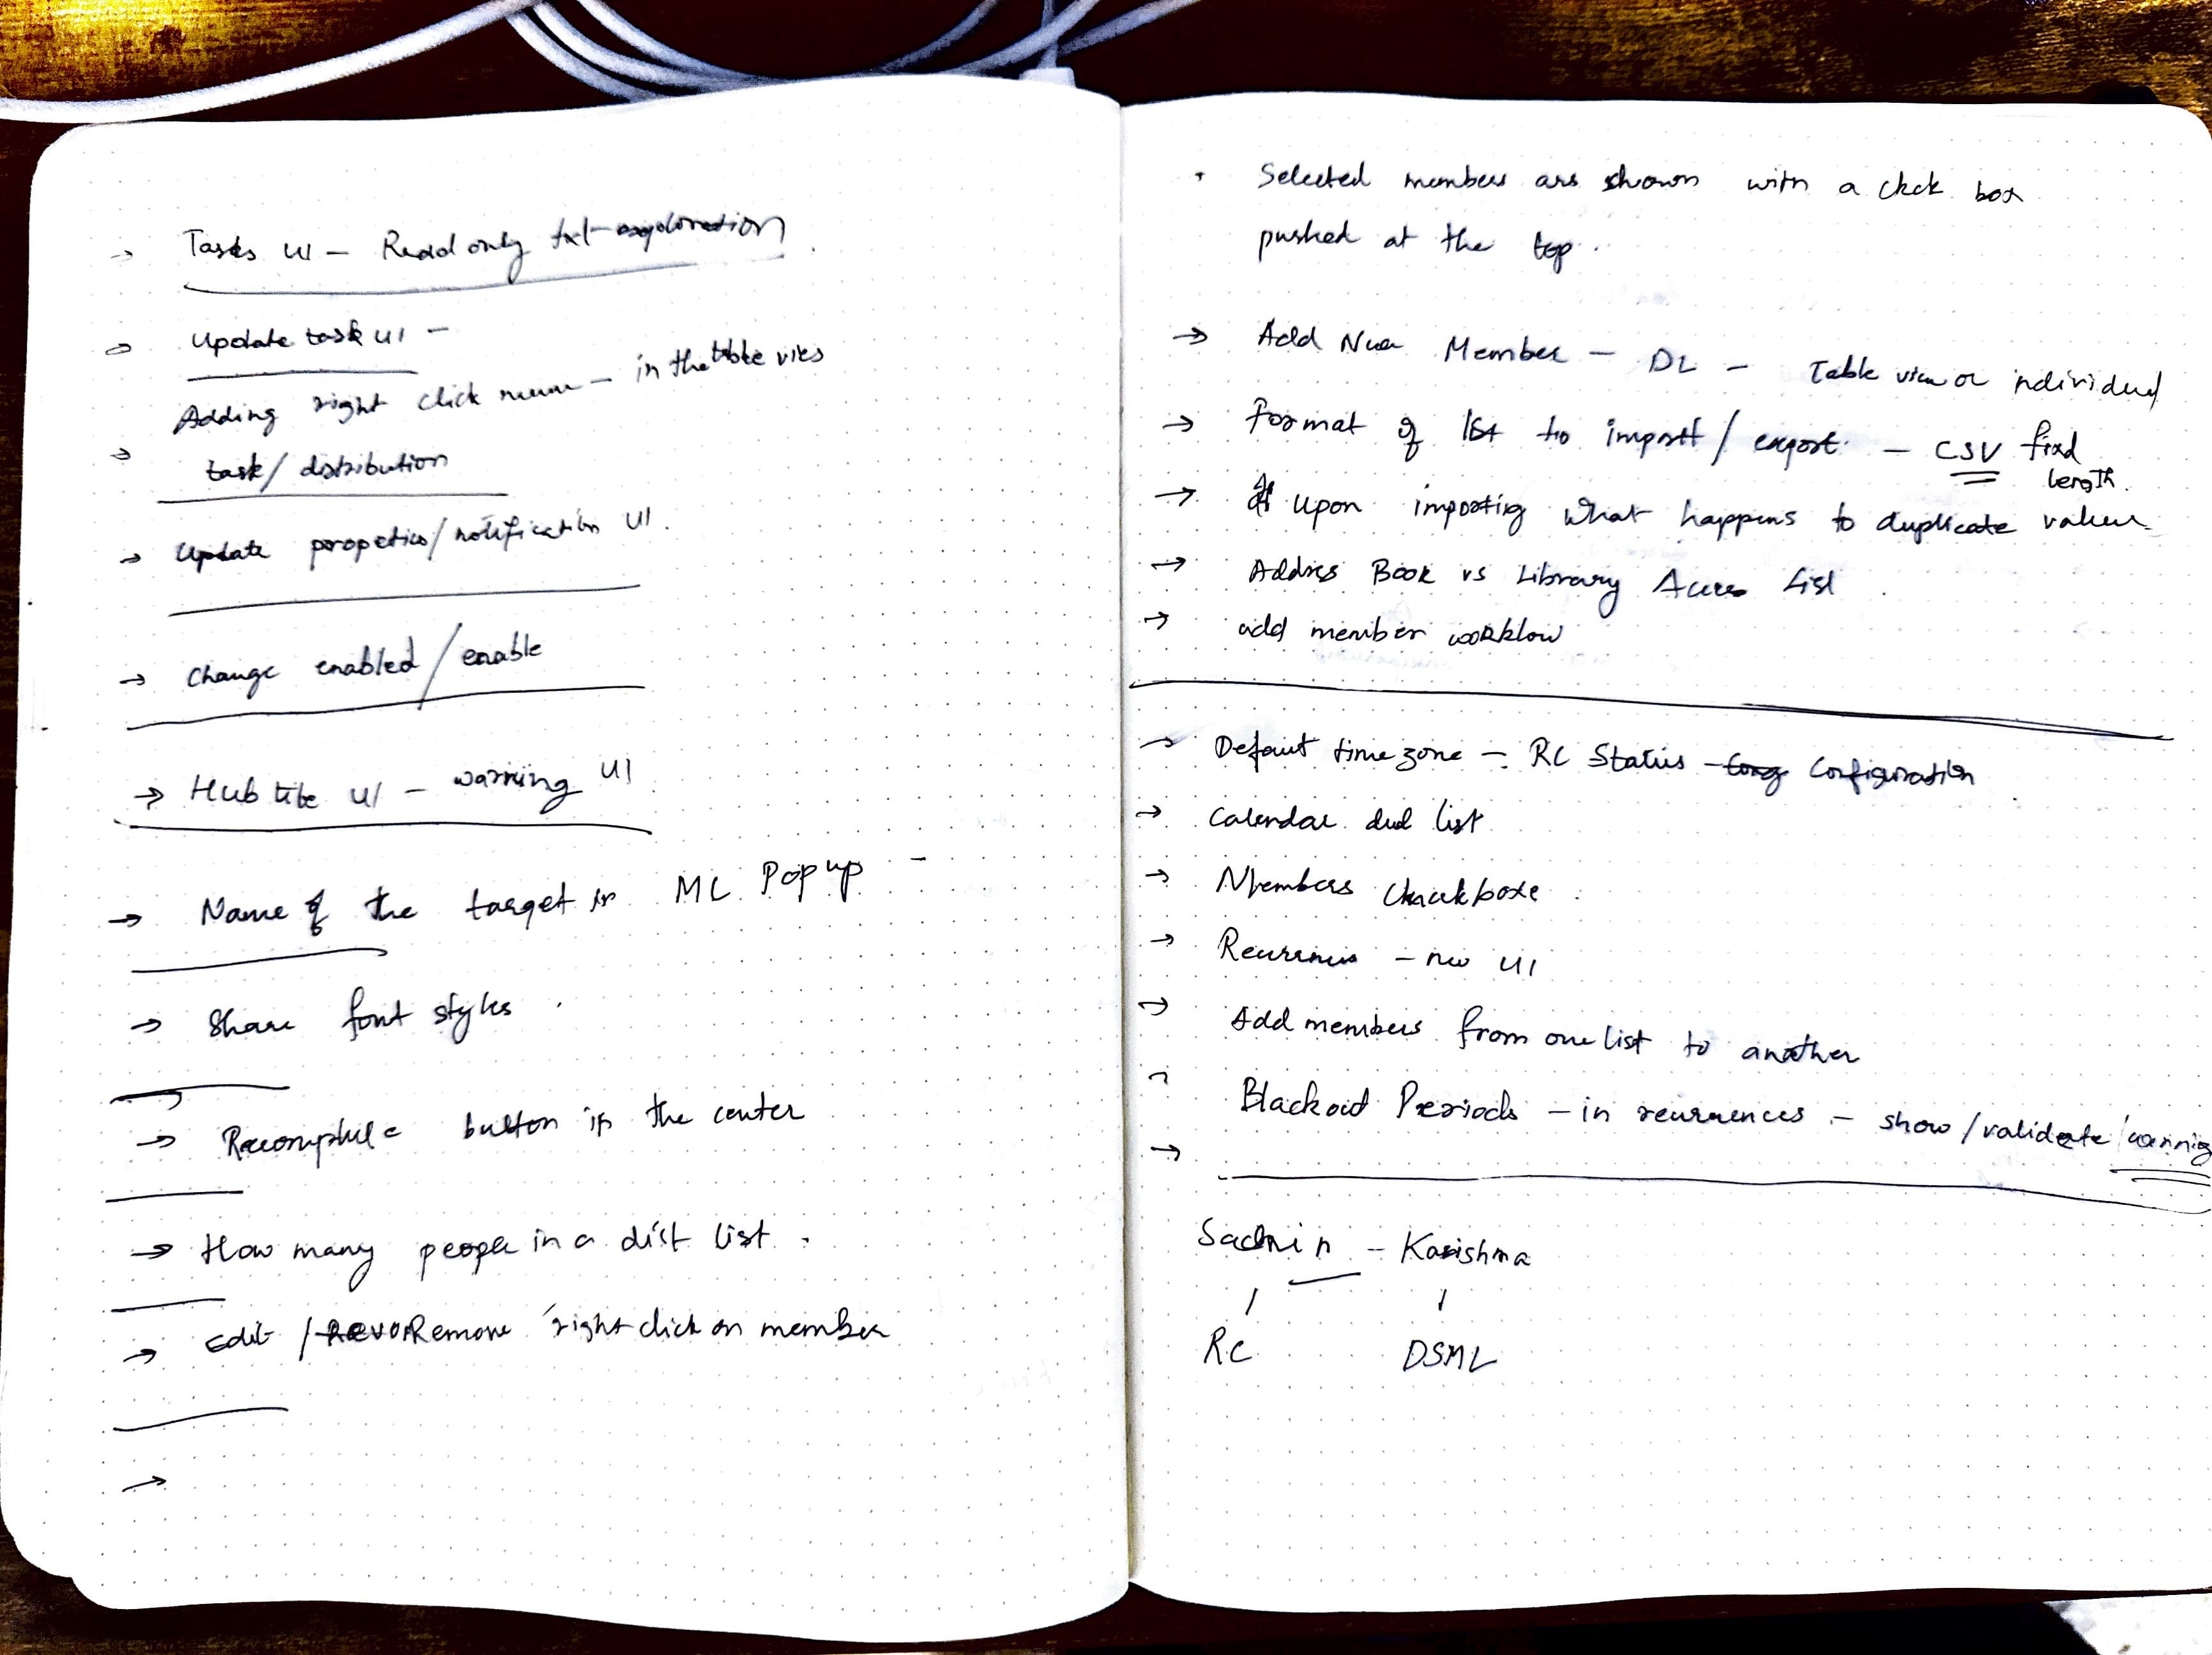 → Tasks UI – Read only txt exploration.
→ Update task UI –
→ Adding right click menu – in the table view
task / distribution
→ Update properties/notification UI.
→ Change enabled / enable
→ Hub tile UI – warning UI
→ Name of the target in ML Pop up –
→ Share font styles.
→ button in the center
→ How many people in a dist list.
→ Edit / Remove right click on member
→
Selected members are shown with a chck box
pushed at the top.
→ Add New Member – DL – Table view or individual
→ Format of list to import / export – CSV fixd
length.
→ Upon importing what happens to duplicate values
→ Address Book vs Library Access List
→ add member workflow
→ Default time zone – RC Status – Configuration
→ Calendar list
→ Members checkboxe
→ – new UI
→ Add members from one list to another
→ Blackout Periods – in recurrences – show / validate / warning
→
Sachin – Karishma
RC DSML